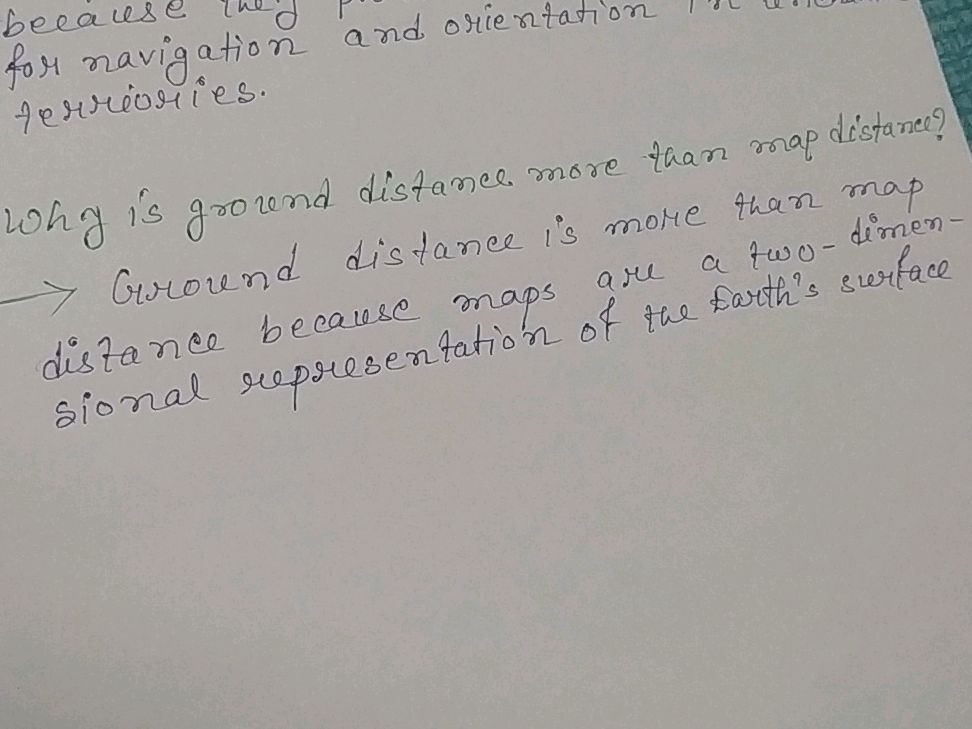 because they
for navigation and orientation in
terriories.
Why is ground distance more than map distance?
→ Ground distance is more than map
distance because maps are a two-dimen-
sional representation of the Earth's surface